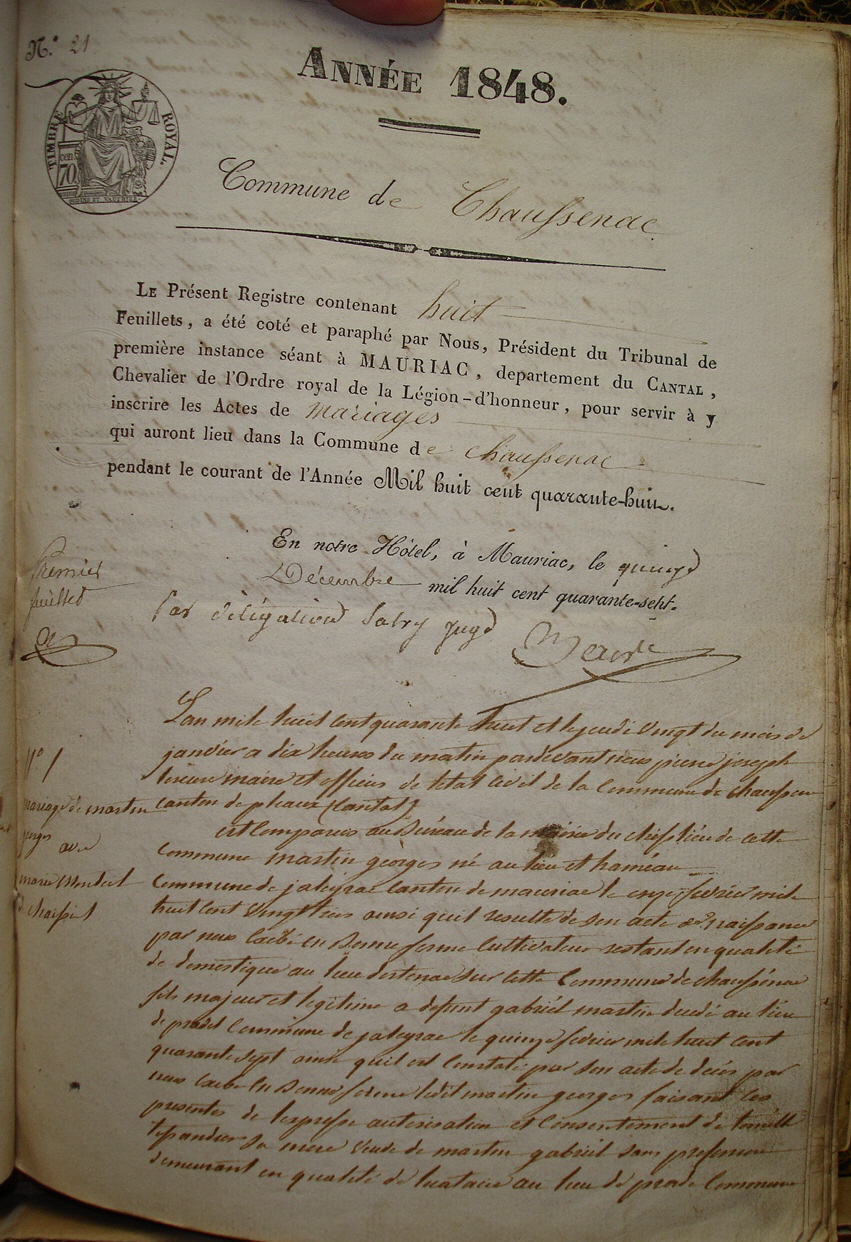 N.° 21
ANNÉE 1848.
TIMBRE ROYAL.
70
Commune de Chaussenac
LE Présent Registre contenant huit
Feuillets, a été coté et paraphé par Nous, Président du Tribunal de
première instance séant à MAURIAC, departement du CANTAL,
Chevalier de l'Ordre royal de la Légion-d'honneur, pour servir à y
inscrire les Actes de mariages
qui auront lieu dans la Commune de chaussenac
pendant le courant de l'Année Mil huit cent quarante-huit.
En notre Hôtel, à Mauriac, le quinze
Décembre mil huit cent quarante-sept.
Premier
feuillet
Par délégation juge
L'an mil huit cent quarante huit et le jeudi vingt du mois de
janvier a dix heures du matin pardevant nous pierre joseph
maire et officier de l'etat civil de la Commune de chaussenac
canton de pleaux (Cantal)
N° 1
mariage de martin
georges avec
marie
est Comparu au Bureau de la mairie du chef lieu de cette
commune martin georges né au lieu et hameau
Commune de jaleyrac canton de mauriac le onze fevrier mil
huit cent vingt trois ainsi qu'il resulte de son acte de naissance
par nous en Bonne forme Cultivateur restant en qualité
de domestique au lieu sur cette Commune de chaussenac
fils majeur et legitime a defunt gabriel martin decedé au lieu
de Commune de jaleyrac le quinze fevrier mil huit cent
quarante sept ainsi qu'il est Constaté par son acte de décès par
nous en Bonne forme ledit martin georges faisant les
presentes de l'expresse autorisation et Consentement de
sa mere veuve de martin gabriel sans profession
demeurant en qualité de au lieu de Commune